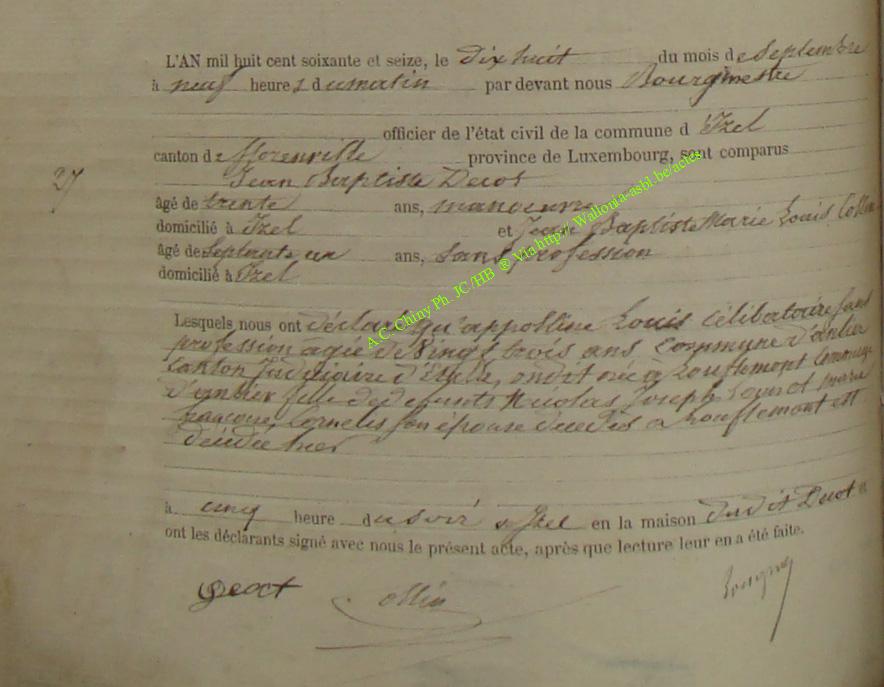 L'AN mil huit cent soixante et seize, le dix huit du mois de Septembre
à neuf heures du matin par devant nous Bourgmestre
officier de l'état civil de la commune d'Izel
canton de florenville province de Luxembourg, sont comparus
27
Jean Baptiste Decot
âgé de trente ans, manoeuvre
domicilié à Izel et Jean Baptiste Marie Louis Collin
âgé de Septante un ans, Sans profession
domicilié à Izel
Lesquels nous ont déclaré qu'appoline Louis Célibataire Sans
profession agée de vingt trois ans commune d'anlier
canton Judiciaire d'Etalle, née à Louftemont commune
d'anlier fille de defunts Nicolas Joseph Louis et marie
Cornelis son épouse décédés a Louftemont est
décédée hier
à cinq heure du soir à Izel en la maison dudit Decot et
ont les déclarants signé avec nous le présent acte, après que lecture leur en a été faite.
Decot Collin
A.C. Chiny Ph. JC/HB ® Via http://Wallonia-asbl.be/actes